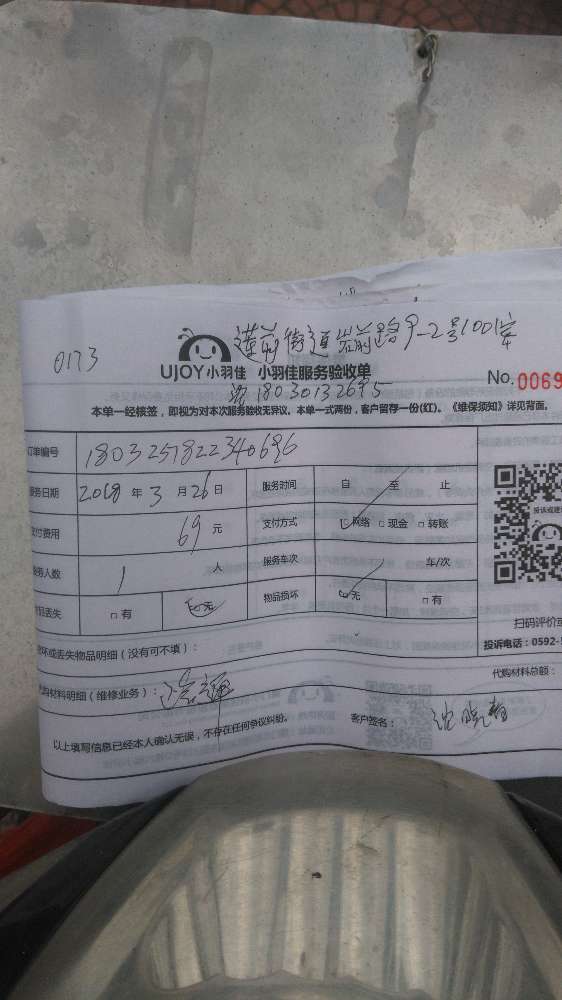 莲前街道岩前路9-2号1001室
0173
UJOY小羽佳 小羽佳服务验收单
No.0069
18030132695
本单一经核签，即视为对本次服务验收无异议。本单一式两份，客户留存一份(红)。《维保须知》详见背面。
订单编号 1803251822340696
服务日期 2018年3月26日 服务时间 自 至 止
支付费用 69元 支付方式 网络 □现金 □转账
服务人数 1人 服务车次 车/次
丢失 □有 无 物品损坏 无 □有
扫码评价或
坏或丢失物品明细（没有可不填）：
投诉电话：0592-
代购材料总额：
代购材料明细（维修业务）：
客户签名：
以上填写信息已经本人确认无误，不存在任何争议纠纷。